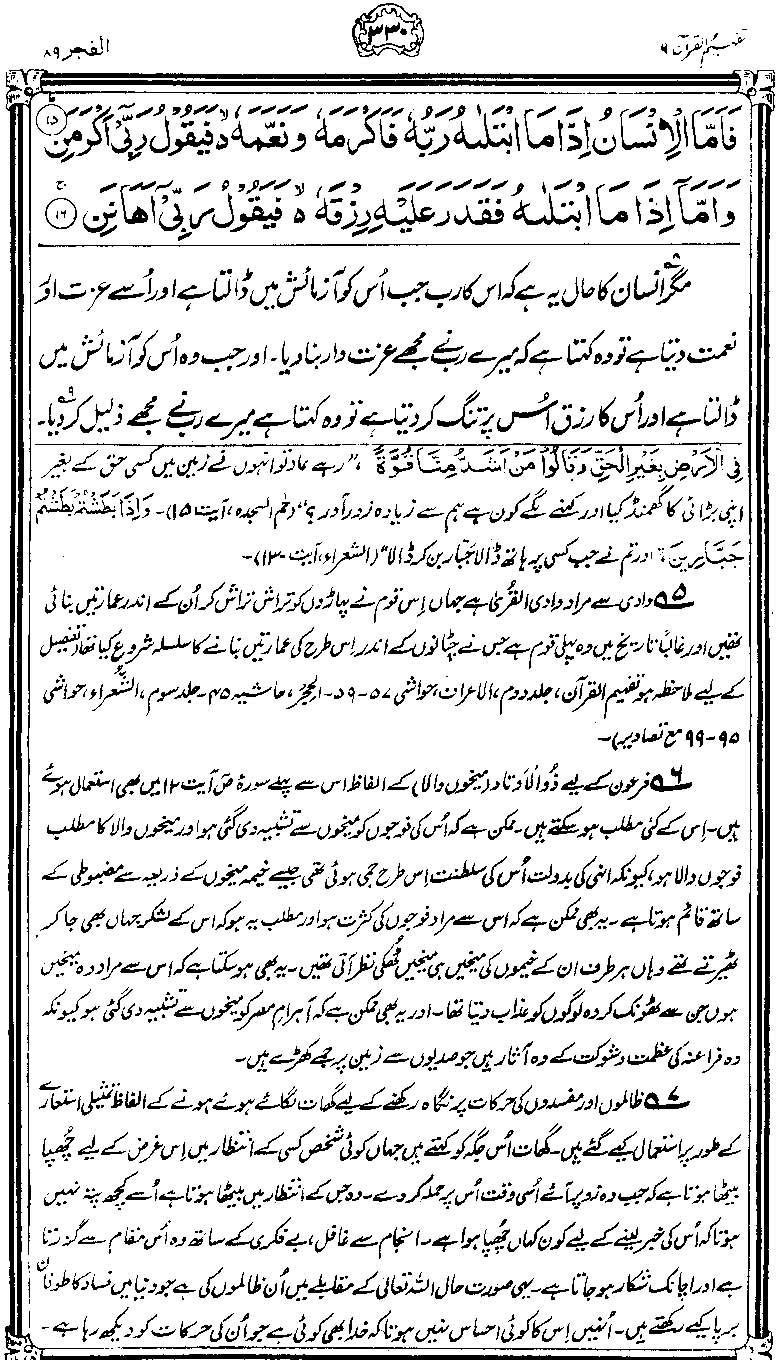 تفہیم القرآن ۶
۳۳۰
الفجر ۸۹
فَاَمَّا الْاِنْسَانُ اِذَا مَا ابْتَلٰىهُ رَبُّهٗ فَاَكْرَمَهٗ وَنَعَّمَهٗ ۙ۬ فَیَقُوْلُ رَبِّیْۤ اَكْرَمَنِ ۱۵
وَاَمَّاۤ اِذَا مَا ابْتَلٰىهُ فَقَدَرَ عَلَیْهِ رِزْقَهٗ ۙ۬ فَیَقُوْلُ رَبِّیْۤ اَهَانَنِ ۱۶
مگر انسان کا حال یہ ہے کہ اس کا رب جب اُس کو آزمائش میں ڈالتا ہے اور اُسے عزت اور
نعمت دیتا ہے تو وہ کہتا ہے کہ میرے رب نے مجھے عزت دار بنا دیا۔ اور جب وہ اُس کو آزمائش میں
ڈالتا ہے اور اُس کا رزق اُس پر تنگ کر دیتا ہے تو وہ کہتا ہے میرے رب نے مجھے ذلیل کر دیا۔۹
فِی الْاَرْضِ بِغَیْرِ الْحَقِّ وَقَالُوْا مَنْ اَشَدُّ مِنَّا قُوَّةً، ”رہے عاد تو انہوں نے زمین میں کسی حق کے بغیر
اپنی بڑائی کا گھمنڈ کیا اور کہنے لگے کون ہے ہم سے زیادہ زور آور؟“ (حٰم السجدہ، آیت ۱۵)۔ وَاِذَا بَطَشْتُمْ بَطَشْتُمْ
جَبَّارِیْنَ، ”اور تم نے جب کسی پر ہاتھ ڈالا جبّار بن کر ڈالا“ (الشعراء، آیت ۱۳۰)۔
۵ وادی سے مراد وادی القریٰ ہے جہاں اِس قوم نے پہاڑوں کو تراش تراش کر اُن کے اندر عمارتیں بنائی
تھیں اور غالباً تاریخ میں وہ پہلی قوم ہے جس نے چٹانوں کے اندر اِس طرح کی عمارتیں بنانے کا سلسلہ شروع کیا تھا (تفصیل
کے لیے ملاحظہ ہو تفہیم القرآن، جلد دوم، الاعراف، حواشی ۵۷-۵۹۔ الحجر، حاشیہ ۴۵۔ جلد سوم، الشعراء، حواشی
۹۵-۹۹ مع تصاویر)۔
۶ فرعون کے لیے ذُو الاَوتاد (میخوں والا) کے الفاظ اس سے پہلے سورۂ صٓ آیت ۱۲ میں بھی استعمال ہوئے
ہیں۔ اِس کے کئی مطلب ہو سکتے ہیں۔ ممکن ہے کہ اُس کی فوجوں کو میخوں سے تشبیہ دی گئی ہو اور میخوں والا کا مطلب
فوجوں والا ہو، کیونکہ انہی کی بدولت اُس کی سلطنت اِس طرح جمی ہوئی تھی جیسے خیمہ میخوں کے ذریعہ سے مضبوطی کے
ساتھ قائم ہوتا ہے۔ یہ بھی ممکن ہے کہ اس سے مراد فوجوں کی کثرت ہو اور مطلب یہ ہو کہ اس کے لشکر جہاں بھی جا کر
ٹھیرتے تھے وہاں ہر طرف ان کے خیموں کی میخیں ہی میخیں ٹھکی نظر آتی تھیں۔ یہ بھی ہو سکتا ہے کہ اس سے مراد وہ میخیں
ہوں جن سے ٹھونک کر وہ لوگوں کو عذاب دیتا تھا۔ اور یہ بھی ممکن ہے کہ اَہرام مصر کو میخوں سے تشبیہ دی گئی ہو کیونکہ
وہ فراعنہ کی عظمت و شوکت کے وہ آثار ہیں جو صدیوں سے زمین پر جمے کھڑے ہیں۔
۷ ظالموں اور مفسدوں کی حرکات پر نگاہ رکھنے کے لیے گھات لگائے ہوئے ہونے کے الفاظ تمثیلی استعارے
کے طور پر استعمال کیے گئے ہیں۔ گھات اُس جگہ کو کہتے ہیں جہاں کوئی شخص کسی کے انتظار میں اِس غرض کے لیے چُھپا
بیٹھا ہوتا ہے کہ جب وہ زد پر آئے اُسی وقت اُس پر حملہ کر دے۔ وہ جس کے انتظار میں بیٹھا ہوتا ہے اُسے کچھ پتہ نہیں
ہوتا کہ اُس کی خبر لینے کے لیے کون کہاں چُھپا ہوا ہے۔ انجام سے غافل، بے فکری کے ساتھ وہ اُس مقام سے گزرتا
ہے اور اچانک شکار ہو جاتا ہے۔ یہی صورت حال اللہ تعالیٰ کے مقابلے میں اُن ظالموں کی ہے جو دنیا میں فساد کا طوفان
برپا کیے رکھتے ہیں۔ اُنہیں اِس کا کوئی احساس نہیں ہوتا کہ خدا بھی کوئی ہے جو اُن کی حرکات کو دیکھ رہا ہے۔